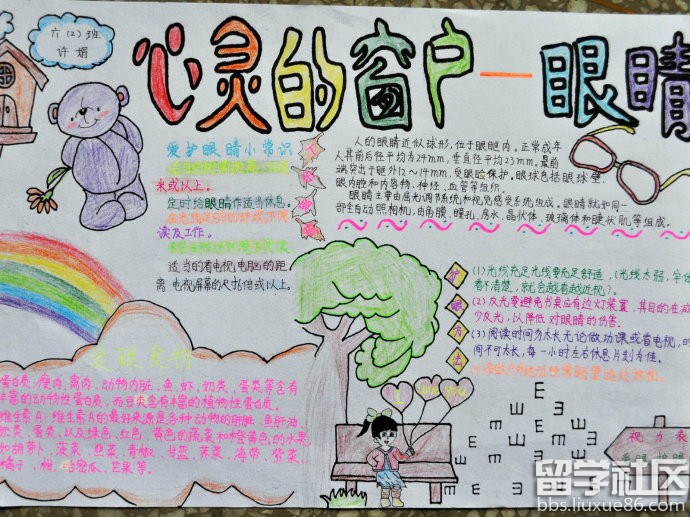 六(2)班
许娟
心灵的窗户一眼睛
爱护眼睛小常识
米或以上。
定时给眼睛作适当休息。
读及工作。
适当的看电视,电脑的距
离 电视屏幕的尺姑倍或以上。
人的眼睛近似球形,位于眼眶内。正常成年
人其前后径平均为24mm,垂直径平均23mm。最前
端突出于眶外12~14mm,受眼睑保护。眼球包括眼球壁、
眼内腔和内容物、神经、血管等组织。
眼睛主要由屈光调节系统和视觉感受系统组成。眼睛就如同一
部全自动照相机,由角膜、瞳孔、房水、晶状体、玻璃体和睫状肌等组成。
护眼方法
(1)光线充足光线要充足舒适,(光线太弱,字体
看不清楚,就会越看越近视)。
(2)反光要避免书桌应有边灯装置,其目的在减
少反光,以降低对眼睛的伤害。
(3)阅读时间勿太长无论做功课或看电视,时
间不可太长,每一小时左右休息片刻为佳。
蛋白质:瘦肉、禽肉、动物内脏、鱼、虾、奶类、蛋类等含有
丰富的动物性蛋白质,而豆类含有丰富的植物性蛋白质。
维生素A:维生素A的最好来源是各种动物的肝脏、鱼肝油
奶类、蛋类,以及绿色、红色、黄色的蔬菜和橙黄色的水果,
如胡萝卜、菠菜、韭菜、青椒、甘蓝、荠菜、海带、紫菜、
橘子、柑、哈密瓜、芒果等。
I love you
视力表
爱眼 护睛
留学社区
bbs.liuxue86.com